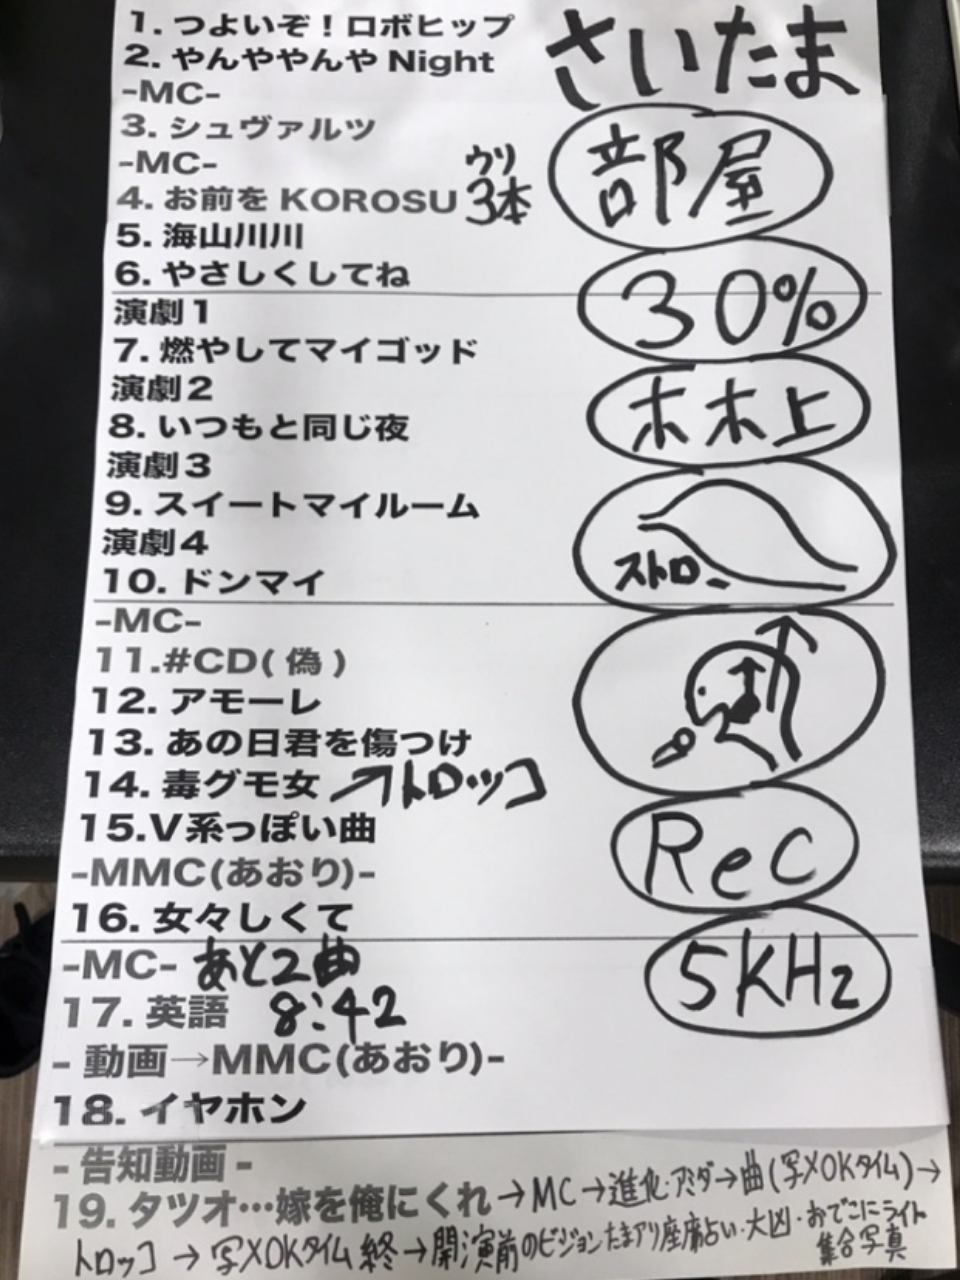 1. つよいぞ！ロボヒップ
2. やんややんや Night
-MC-
3. シュヴァルツ
-MC-
4. お前を KOROSU
ウリ
3本
5. 海山川川
6. やさしくしてね
演劇1
7. 燃やしてマイゴッド
演劇2
8. いつもと同じ夜
演劇3
9. スイートマイルーム
演劇4
10. ドンマイ
-MC-
11.#CD( 偽 )
12. アモーレ
13. あの日君を傷つけ
14. 毒グモ女 トロッコ
15.V系っぽい曲
-MMC(あおり)-
16. 女々しくて
-MC- あと2曲
17. 英語 8:42
- 動画→MMC(あおり)-
18. イヤホン
- 告知動画 -
19. タツオ…嫁を俺にくれ→MC→進化・アミダ→曲(写メOKタイム)→
トロッコ→写メOKタイム終→開演前のビジョンたまアリ座席占い・大凶・おでこにライト
集合写真
さいたま
部屋
30%
ホホ上
ストロー
Rec
5KHz